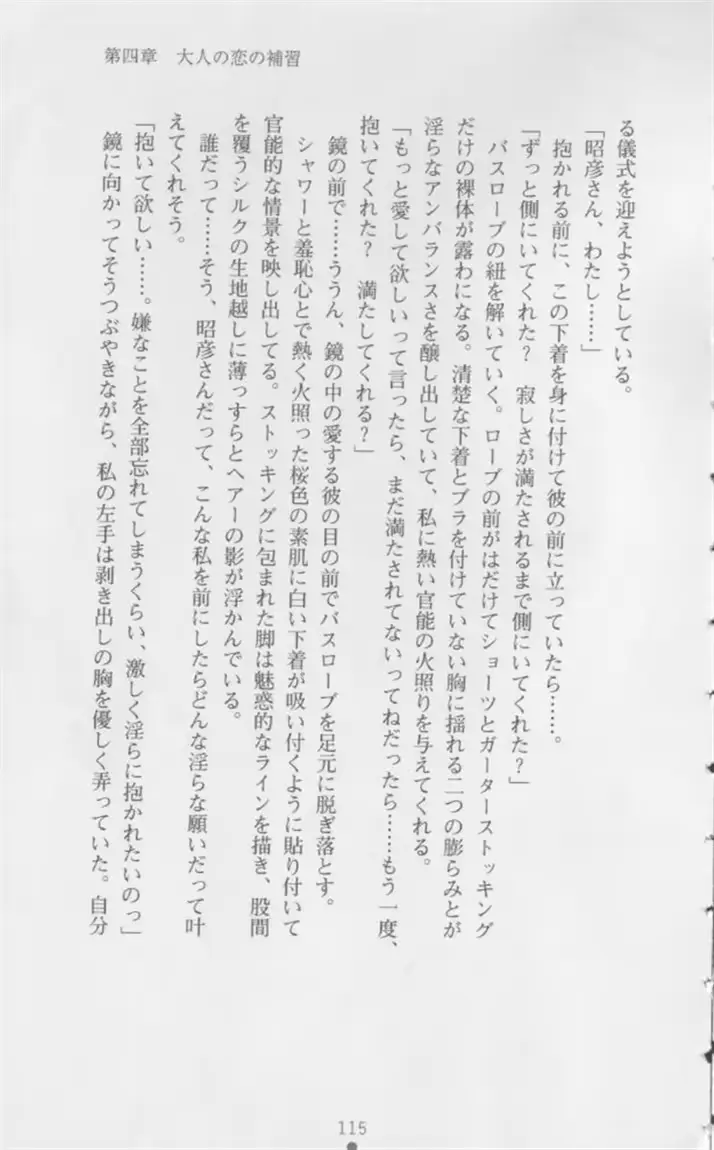 第四章　大人の恋の補習
る儀式を迎えようとしている。
「昭彦さん、わたし……」
抱かれる前に、この下着を身に付けて彼の前に立っていたら……。
「ずっと側にいてくれた？　寂しさが満たされるまで側にいてくれた？」
バスローブの紐を解いていく。ローブの前がはだけてショーツとガーターストッキング
だけの裸体が露わになる。清楚な下着とブラを付けていない胸に揺れる二つの膨らみとが
淫らなアンバランスさを醸し出していて、私に熱い官能の火照りを与えてくれる。
「もっと愛して欲しいって言ったら、まだ満たされてないってねだったら……もう一度、
抱いてくれた？　満たしてくれる？」
鏡の前で……ううん、鏡の中の愛する彼の目の前でバスローブを足元に脱ぎ落とす。
シャワーと羞恥心とで熱く火照った桜色の素肌に白い下着が吸い付くように貼り付いて
官能的な情景を映し出してる。ストッキングに包まれた脚は魅惑的なラインを描き、股間
を覆うシルクの生地越しに薄っすらとヘアーの影が浮かんでいる。
誰だって……そう、昭彦さんだって、こんな私を前にしたらどんな淫らな願いだって叶
えてくれそう。
「抱いて欲しい……。嫌なことを全部忘れてしまうくらい、激しく淫らに抱かれたいのっ」
鏡に向かってそうつぶやきながら、私の左手は剥き出しの胸を優しく弄っていた。自分
115